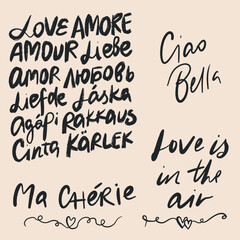 LOVE AMORE
AMOUR Liebe
AMOR ЛЮБОВЬ
Liefde Láska
Agápi Rakkaus
Cinta KÄRLEK
Ciao
Bella
Ma CHÉRIE
Love is
in the
air